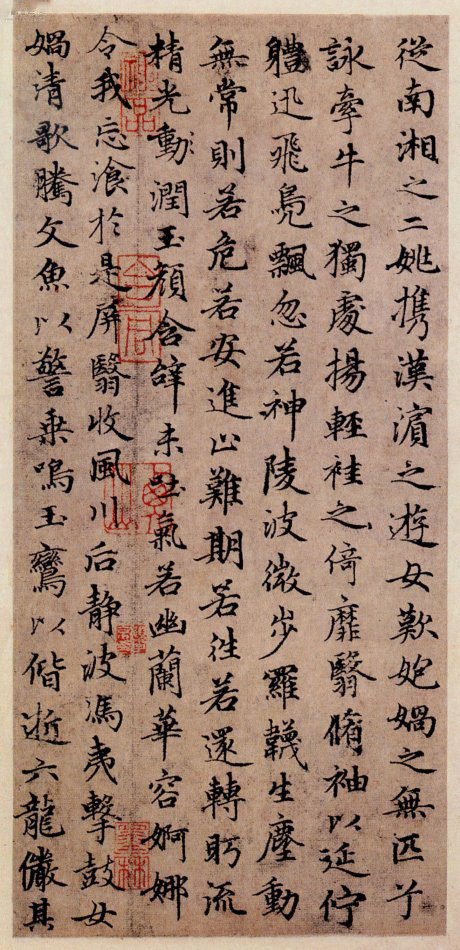 從南湘之二姚携漢濱之游女歎㚿媧之無匹兮
詠牽牛之獨處揚輕袿之倚靡翳脩袖以延佇
體迅飛鳧飄忽若神陵波微步羅韈生塵動
無常則若危若安進止難期若往若還轉眄流
精光動潤玉顏含辭未吐氣若幽蘭華容婀娜
令我忘飡於是屏翳收風川后静波馮夷擊鼓女
媧清歌騰文魚以警乘鳴玉鸞以偕逝六龍儼其